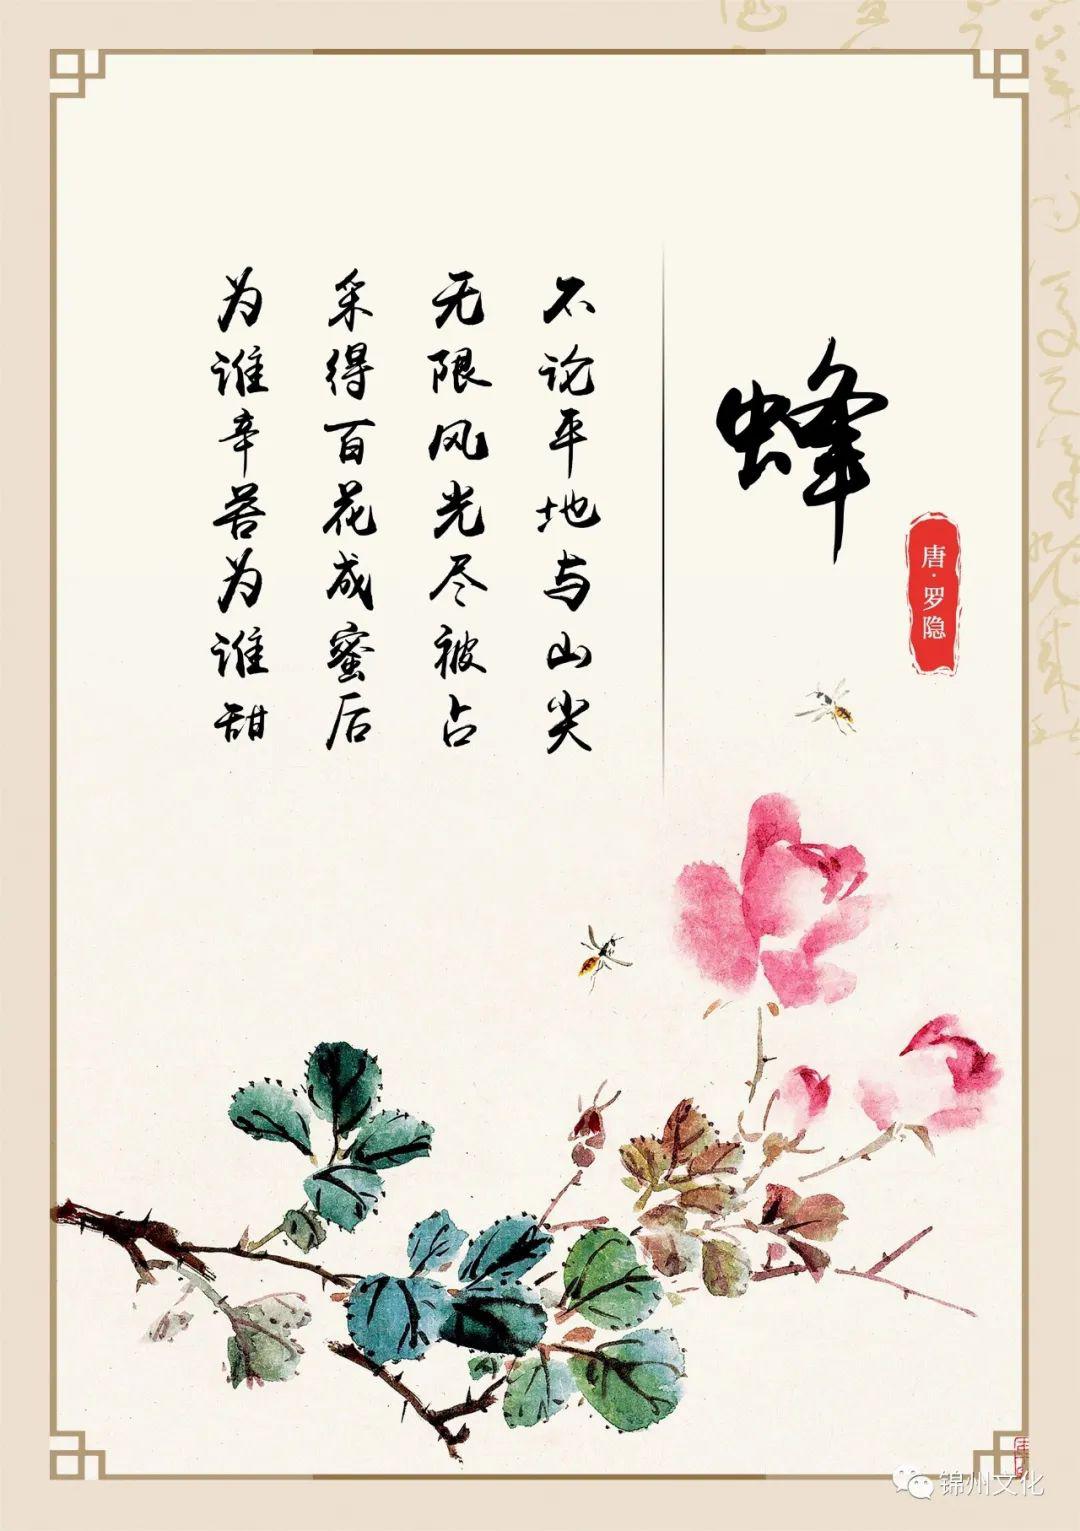 蜂
唐·罗隐
不论平地与山尖
无限风光尽被占
采得百花成蜜后
为谁辛苦为谁甜
锦州文化